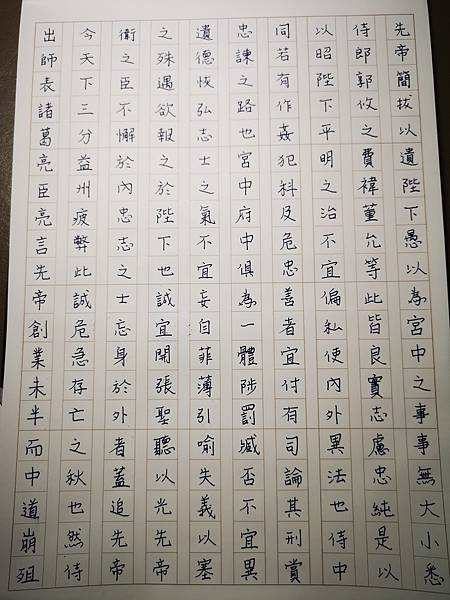 出師表諸葛亮臣亮言先帝創業未半而中道崩殂
今天下三分益州疲弊此誠危急存亡之秋也然侍
衛之臣不懈於內忠志之士忘身於外者蓋追先帝
之殊遇欲報之於陛下也誠宜開張聖聽以光先帝
遺德恢弘志士之氣不宜妄自菲薄引喻失義以塞
忠諫之路也宮中府中俱為一體陟罰臧否不宜異
同若有作姦犯科及危忠善者宜付有司論其刑賞
以昭陛下平明之治不宜偏私使內外異法也侍中
侍郎郭攸之費禕董允等此皆良實志慮忠純是以
先帝簡拔以遺陛下愚以為宮中之事事無大小悉